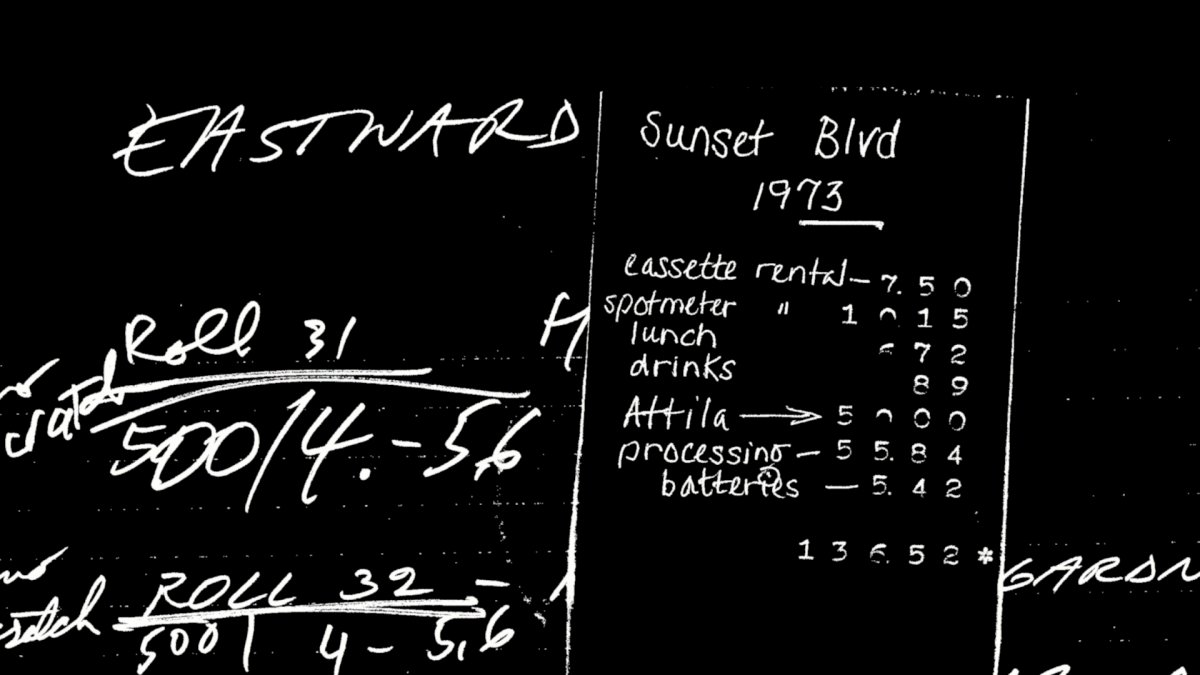 EASTWARD
Roll 31
500/4.-5,6
ROLL 32
500/ 4-5,6
Sunset Blvd
1973
cassette rental— 7.50
spotmeter " 10 15
lunch 6 72
drinks 89
Attila → 50 00
processing — 55.84
batteries — 5.42
136 52 *